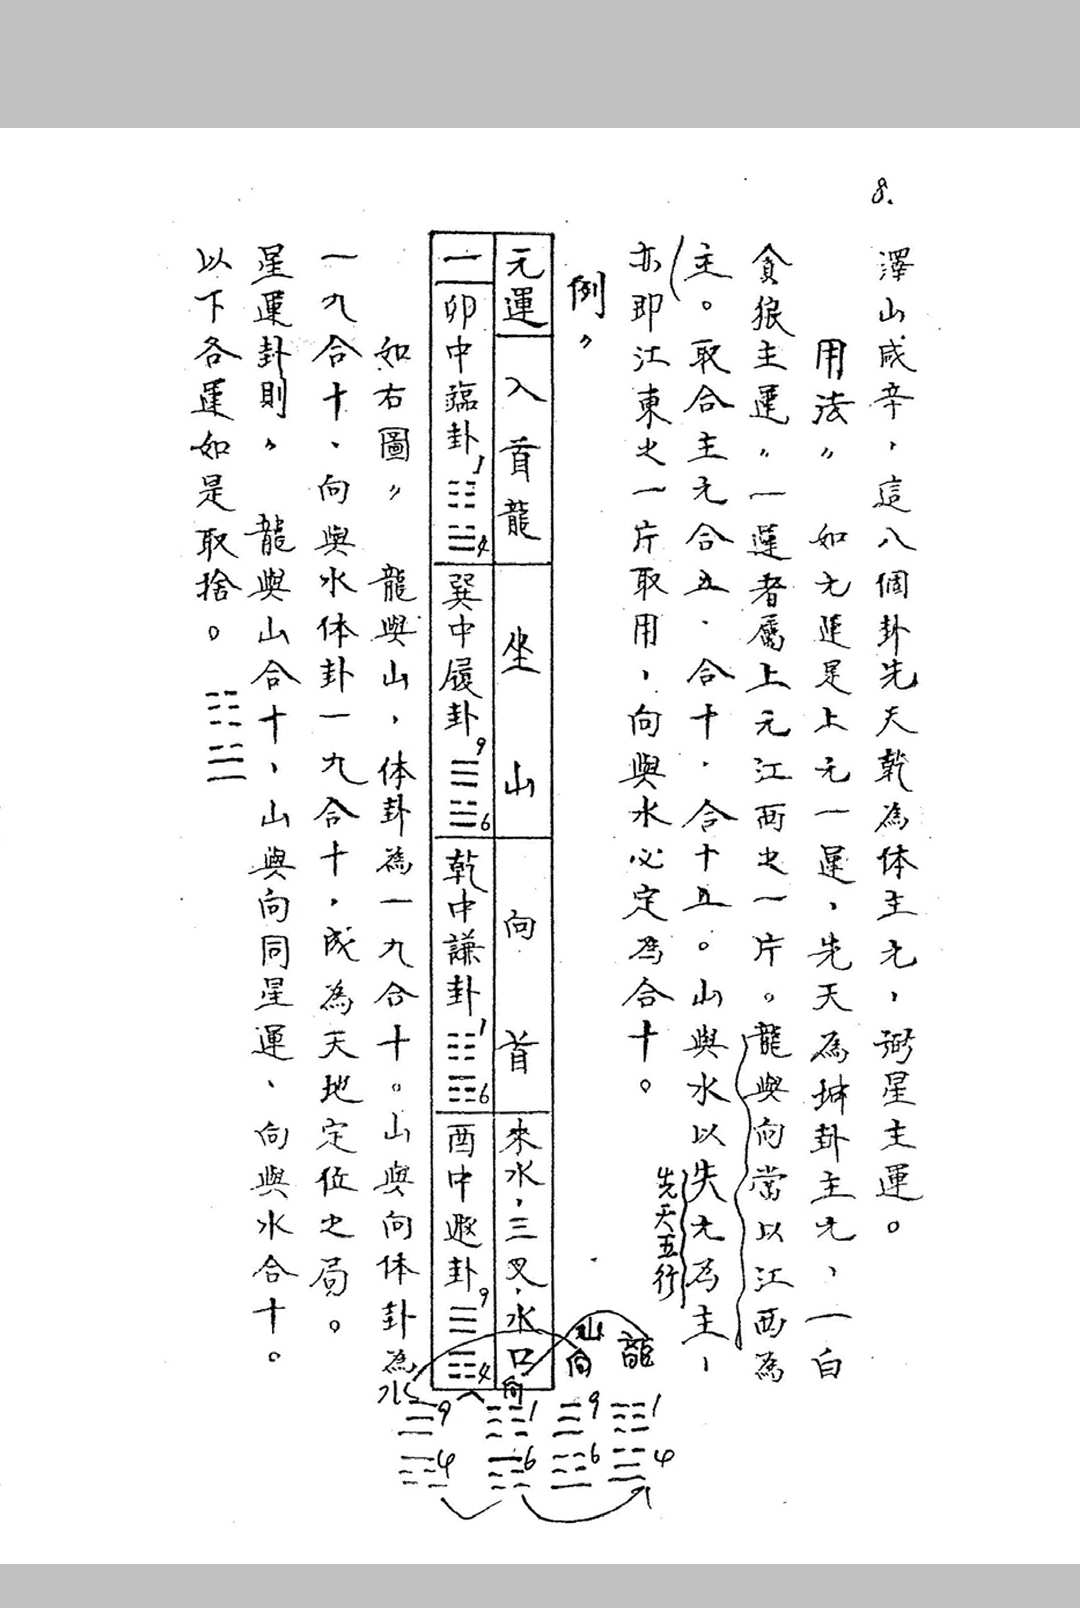 8.
澤山咸辛，這八個卦先天乾為体主元，弼星主運。
用法〃 如元運是上元一運，先天為坤卦主元，一白
貪狼主運〃一運者屬上元江西之一片。龍與向當以江西為
主。取合主元合五．合十．合十五。山與水以失元為主，
先天五行
亦即江東之一片取用，向與水必定為合十。
例〃
元運 入首龍 坐山 向首 來水，三叉，水口
一 卯中臨卦 1 4 巽中履卦 9 6 乾中謙卦 1 6 酉中遯卦 9 4
如右圖〃 龍與山，体卦為一九合十。山與向体卦為
一九合十、向與水体卦一九合十，成為天地定位之局。
星運卦則〃 龍與山合十，山與向同星運、向與水合十。
以下各運如是取捨。
龍 山 向 向 水
1 9 1 9
4 6 6 4